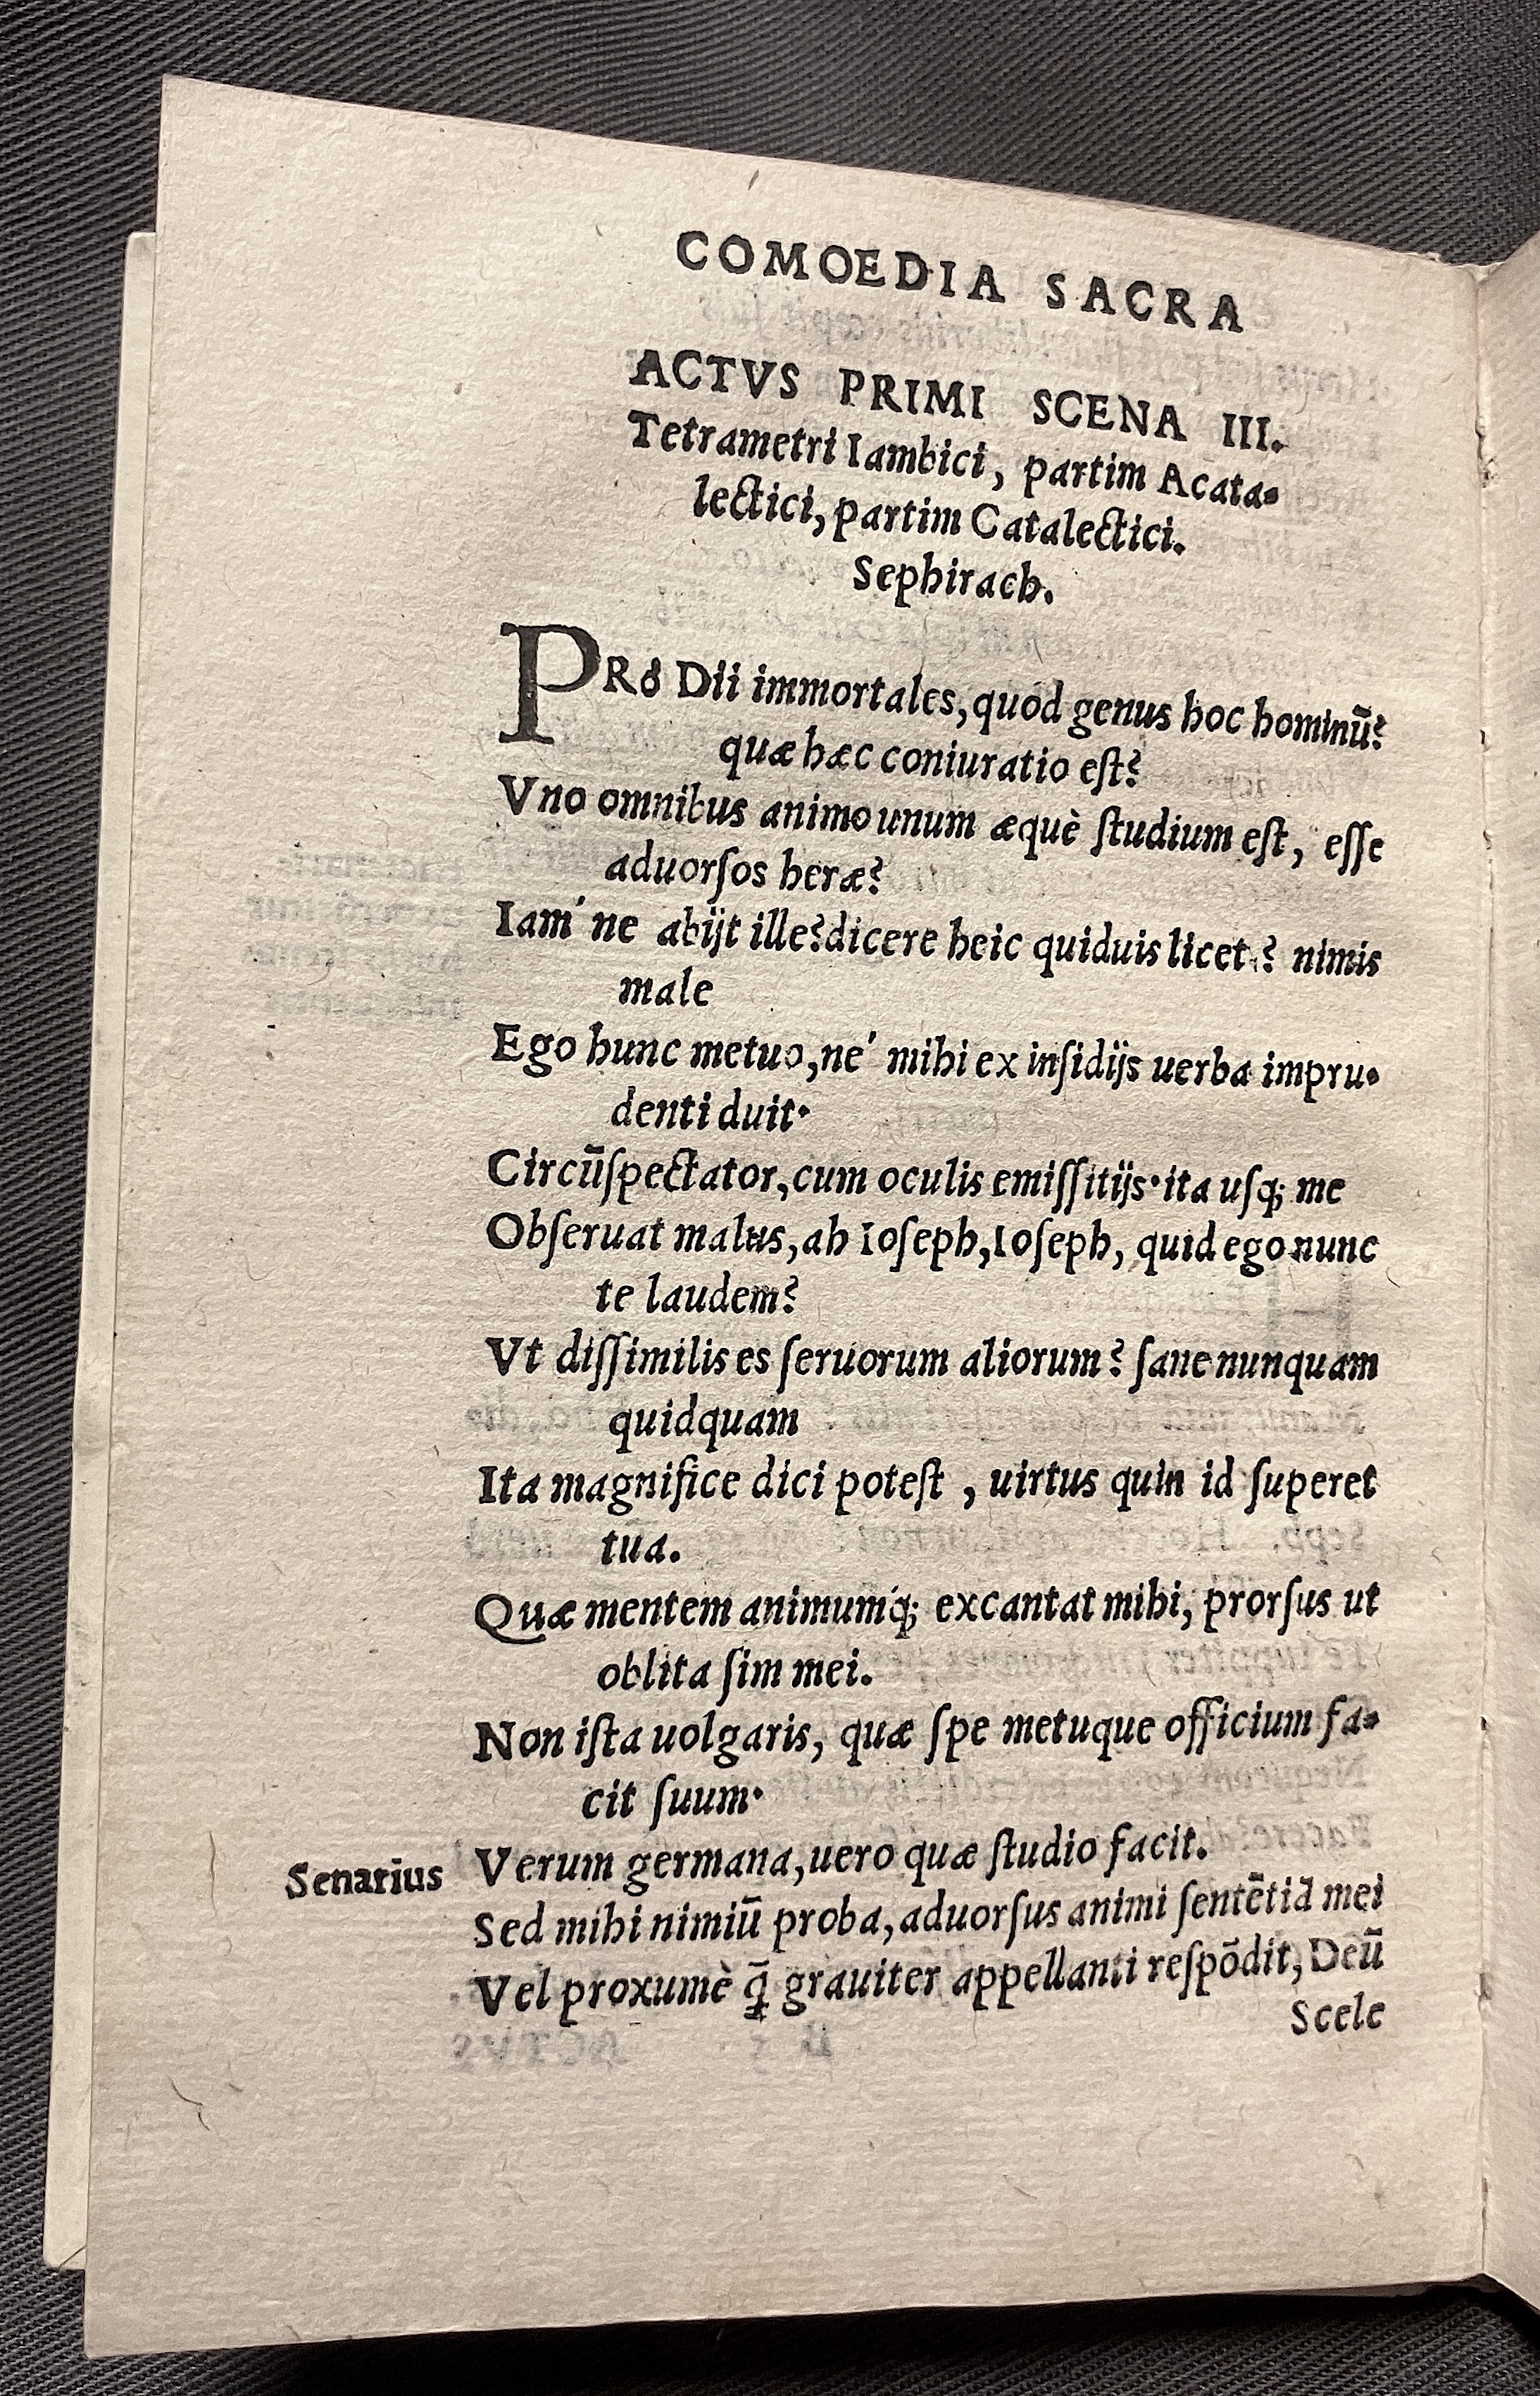 COMOEDIA SACRA
ACTVS PRIMI SCENA III.
Tetrametri Iambici, partim Acata-
lectici, partim Catalectici.
Sephirach.
PRó Dii immortales, quod genus hoc hominū?
quæ hæc coniuratio eſt?
Vno omnibus animo unum æquè ſtudium eſt, eſſe
aduorſos heræ?
Iam' ne abijt ille? dicere heic quiduis licet? nimis
male
Ego hunc metuo, ne' mihi ex inſidijs uerba impru-
denti duit·
Circūſpectator, cum oculis emiſſitijs· ita uſq; me
Obſeruat malus, ah Ioſeph, Ioſeph, quid ego nunc
te laudem?
Vt diſſimilis es ſeruorum aliorum? ſane nunquam
quidquam
Ita magnifice dici poteſt, uirtus quin id ſuperet
tua.
Quæ mentem animumq́; excantat mihi, prorſus ut
oblita ſim mei.
Non iſta uolgaris, quæ ſpe metuque officium fa-
cit ſuum·
Senarius Verum germana, uero quæ ſtudio facit.
Sed mihi nimiū proba, aduorſus animi ſentētiā mei
Vel proxumè q̄ grauiter appellanti reſpōdit, Deū
Scele